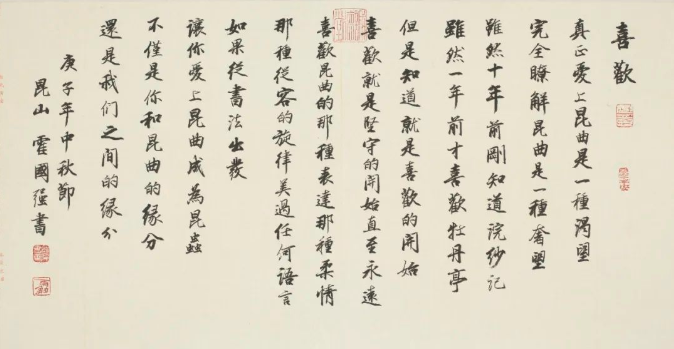 喜歡
真正愛上昆曲是一種渴望
完全瞭解昆曲是一種奢望
雖然十年前剛知道浣紗記
雖然一年前才喜歡牡丹亭
但是知道就是喜歡的開始
喜歡就是堅守的開始直至永遠
喜歡昆曲的那種表達那種柔情
那種從容的旋律美過任何語言
如果從書法出發
讓你愛上昆曲成為昆蟲
不僅是你和昆曲的緣分
還是我们之间的缘分
庚子年中秋節
昆山霍國强書